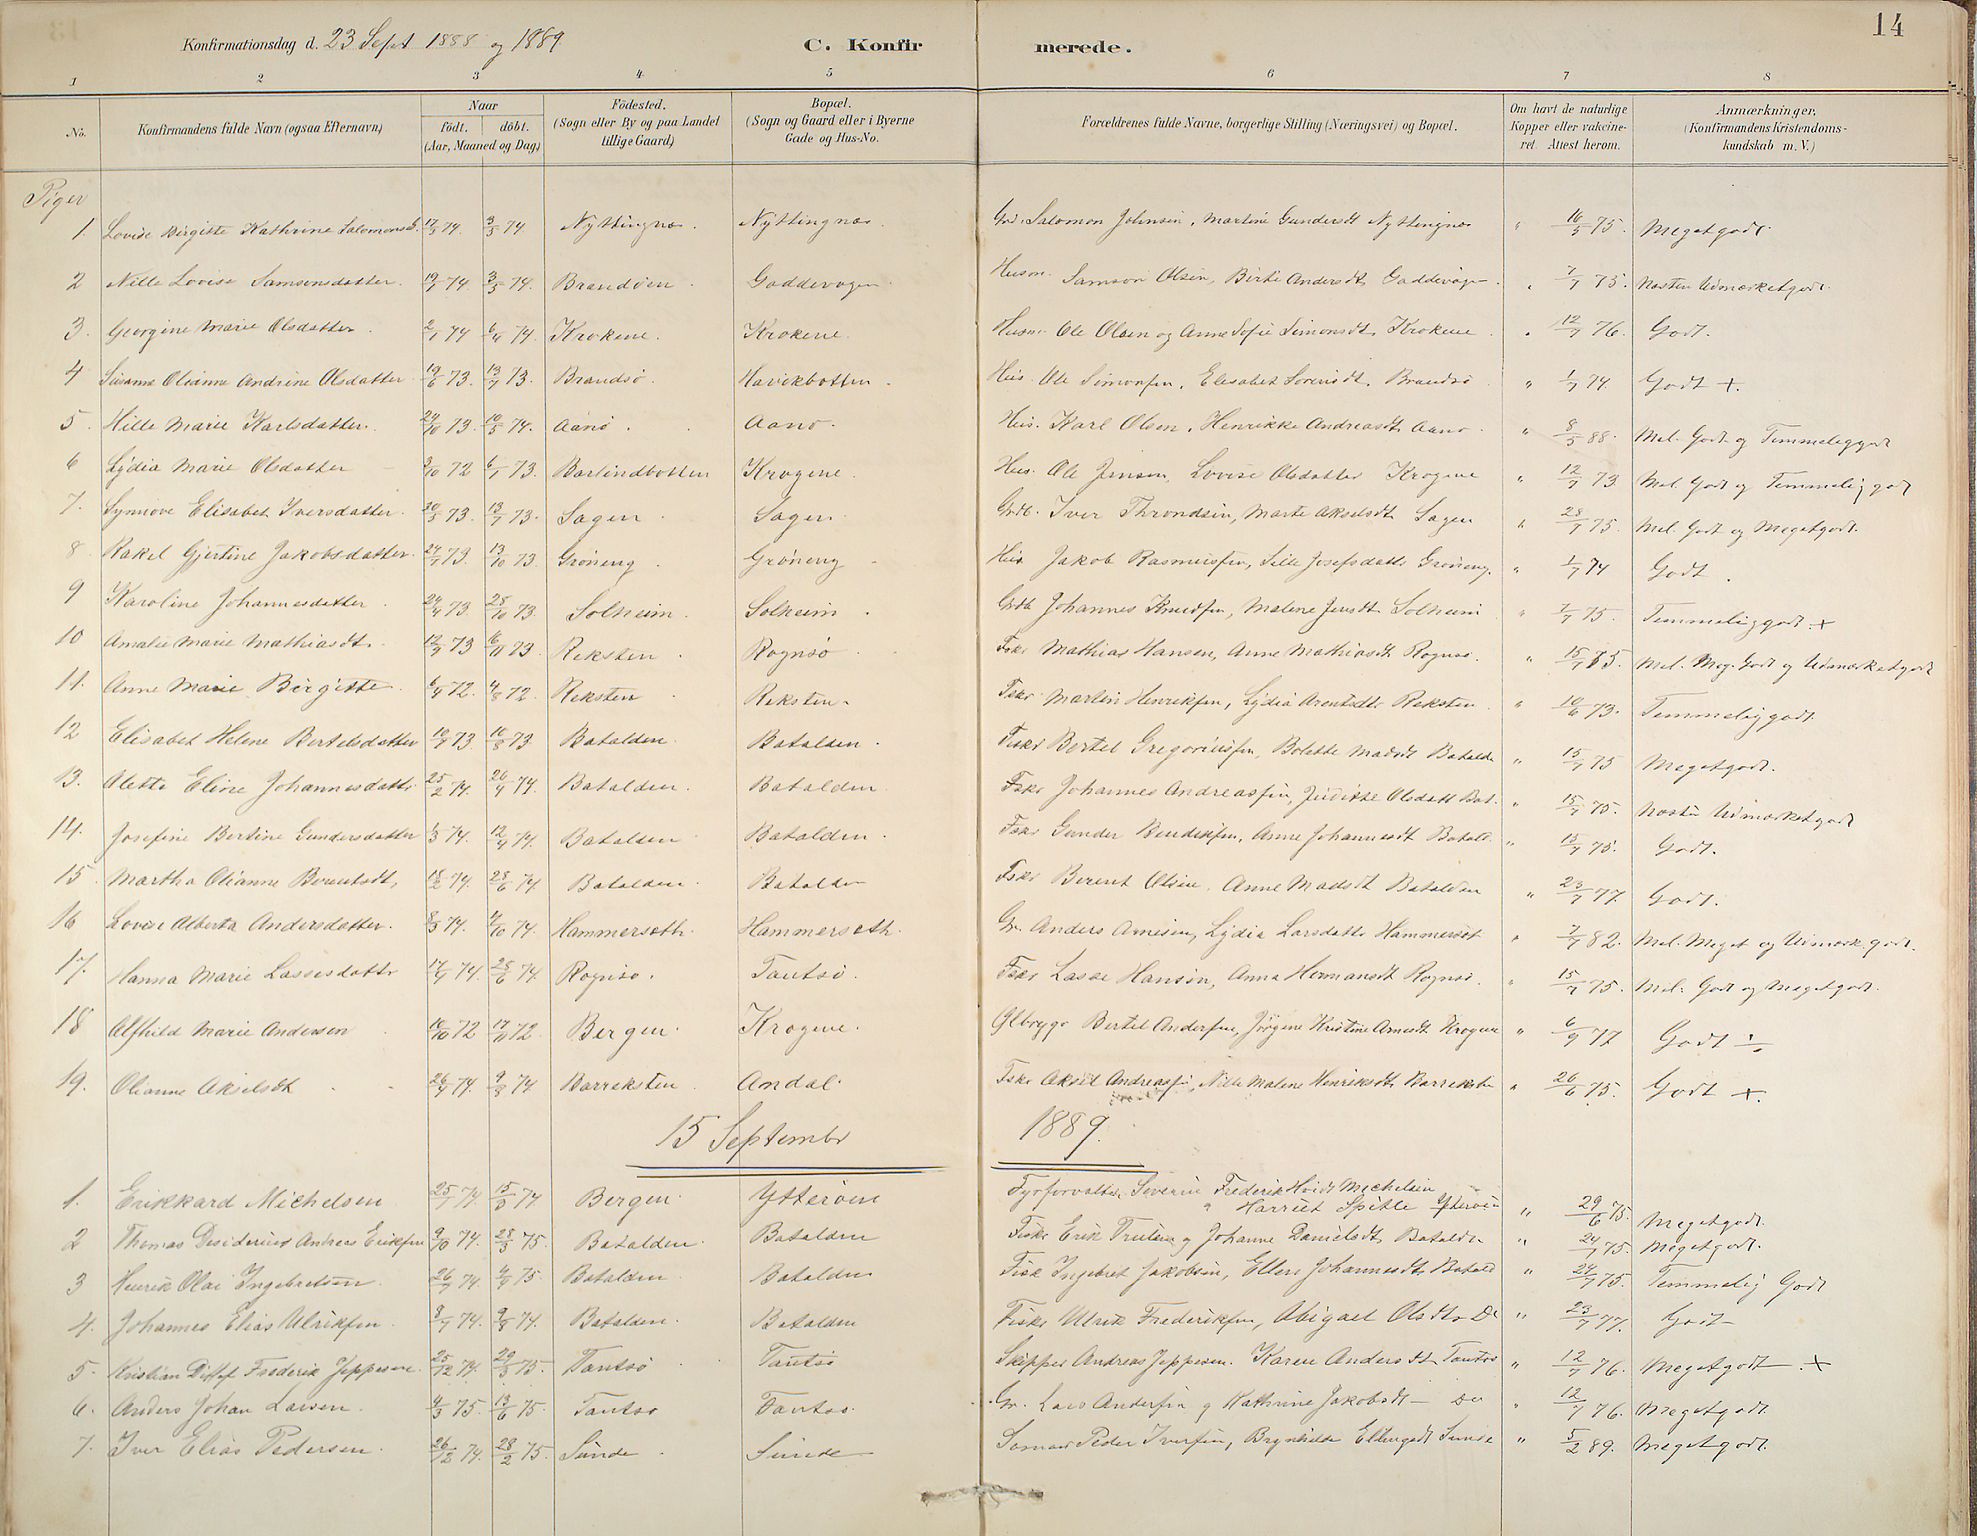 14
Konfirmationsdag d. 23 Sept 1888 og 1889. C. Konfirmerede.
1 2 3 4 5 6 7 8
No. Konfirmandens fulde Navn (ogsaa Efternavn) Naar födt. döbt. (Aar, Maaned og Dag) Födested. (Sogn eller By og paa Landet tillige Gaard) Bopæl. (Sogn og Gaard eller i Byerne Gade og Hus-No. Forældrenes fulde Navne, borgerlige Stilling (Næringsvei) og Bopæl. Om havt de naturlige Kopper eller vakcineret. Attest herom. Anmærkninger. (Konfirmandens Kristendomskundskab m. V.)
Piger
1. Lovise Birgitte Kathrine Salomonsd. 17/3 74. 3/5 74 Nyttingnæs. Nyttingnæs Grd. Salomon Johnsen, Martine Gundersdt Nyttingnæs " 16/5 75. Megetgodt.
2 Nille Lovise Samsonsdatter. 19/1 74. 3/5 74. Brandöen. Gaddevagen. Husm. Samson Olsen, Birte Andersdt Gaddevagen. " 7/7 75. Næsten Udmærketgodt.
3. Georgine Marie Olsdatter. 2/1 74 6/4 74. Krokene. Krokene. Husm. Ole Olsen og Anne Sofie Simonsdt. Krokene " 12/7 76. Godt.
4 Susanne Olianne Andrine Olsdatter 19/6 73. 13/7 73. Brandsö. Havikbotten. Hus. Ole Simonsen, Elisabet Sorensdt. Brandsö " 1/7 74. Godt +.
5. Hille Marie Karlsdatter. 24/10 73. 10/5 74. Aanö. Aanö. Hus. Karl Olsen, Henrikke Andreasdt. Aanö " 8/5 88. Mel. Godt og Temmeliggodt
6 Lydia Marie Olsdatter 3/10 72 6/1 73. Barlindbotten Krogene. Hus. Ole Jensen, Lovise Olsdatter Krogene " 12/7 73 Mel. Godt og Temmeliggodt
7. Synnove Elisabet Iversdatter. 20/5 73. 13/7 73. Sagen. Sagen. Grdb. Iver Throndsen, Marte Akselsdt. Sagen " 28/7 75. Mel. Godt og Megetgodt.
8. Rakel Gjertine Jakobsdatter. 24/7 73. 13/10 73. Gröneng. Gröneng. Hus Jakob Rasmussen, Sille Josefsdatt. Gröneng. " 1/7 74 Godt.
9 Karoline Johannesdatter. 24/4 73. 25/10 73. Solheim. Solheim. Grdb Johannes Knudsen, Malene Jensdt. Solheim " 7/7 75. Temmeliggodt. +
10 Amalie Marie Mathiasdt. 12/9 73 16/11 73. Reksten. Rognsö. Fskr Mathias Hansen, Anne Mathiasdt. Rognsö. " 15/7 85. Mel. Meg. Godt og Udmærketgodt
11. Anne Marie Birgitte. 6/4 72. 4/8 72. Reksten Reksten. Fskr. Martin Henriksen, Lydia Arentsdt. Reksten " 10/6 73. Temmeliggodt.
12 Elisabet Helene Bertelsdatter 10/7 73 10/8 73. Batalden. Batalden. Fiskr Bertel Gregoriussen, Bolette Madsdt Batalde " 15/7 75 Megetgodt.
13. Alette Eline Johannesdattr 25/2 74. 26/4 74. Batalden. Batalden. Fskr Johannes Andreassen, Judithe Olsdatt Bat. " 15/7 75. Næsten Udmærketgodt
14. Josefine Bertine Gundersdatter 1/3 74. 12/4 74. Batalden Batalden. Fskr Gunder Bendiksen, Anne Johannesdt Batald. " 15/7 75. Godt.
15. Martha Olianne Berentsdt. 18/2 74. 28/6 74 Batalden. Batalden Fskr Berent Olsen, Anne Madsdt Batalden " 23/7 77. Godt.
16 Lovise Alberta Andersdatter. 8/3 74. 4/10 74. Hammersæth. Hammersæth. Gr. Anders Arnesen, Lydia Larsdattr Hammersæt " 7/7 82. Mel. Meget og Udmærk. godt.
17. Hanna Marie Lassesdattr 17/4 74. 28/6 74. Rognsö. Tautsö. Fskr Lasse Hansen, Anna Hermansdt. Rognsö. " 15/7 75. Mel. Godt og Megetgodt.
18 Alfhild Marie Andersen 16/10 72 17/11 72. Bergen. Krogene. Bertel Andersen, Jörgine Kristine Arnesdt. Krogene " 6/9 77 Godt
19. Olianne Akselsdt 26/4 74. 9/8 74 Barreksten. Andal. Fskr Aksel Andreassen, Nille Malene Henriksdt. Barreksten " 26/6 75. Godt +.
15 Septembr 1889.
1. Erikkard Michelsen 25/1 74. 15/3 74. Bergen. Ytteröen Fyrforvalter Severin Frederik Hvidt Michelsen
og Harriet Spitle Ytteröen " 29/6 75. Megetgodt.
2 Thomas Desiderius Andreas Eriksen 9/10 74. 28/3 75. Batalden. Batalden Fiskr Erik Trulsen og Johanne Danielsdt. Batalde " 24/7 75. Megetgodt.
3 Henrik Olai Ingebretsen. 26/9 74. 4/4 75. Batalden. Batalden Fisk Ingebret Jakobsen, Ellen Johannesdt. Batald " 24/7 75. Temmelig Godt
4. Johannes Elias Ulriksen. 8/7 74. 9/8 74. Batalden. Batalden Fiskr Ulrik Frederiksen, Abigael Olsdt. Do " 23/7 77. Godt
5. Kristian Frederik Jeppesen. 25/12 74. 29/3 75. Tautsö Tautsö Skipper Andreas Jeppesen. Karen Andersdt. Tautsö " 12/7 76. Megetgodt. +
6. Anders Johan Larsen. 4/3 75. 13/6 75. Tautsö Tautsö. Gr. Lars Andersen og Kathrine Jakobsdt Do " 12/7 76. Megetgodt.
7. Iver Elias Pedersen. 26/12 74. 28/2 75. Sunde. Sunde Peder Iversen, Brynhilde Ellingsdt Sunde " 5/2 89. Megetgodt.